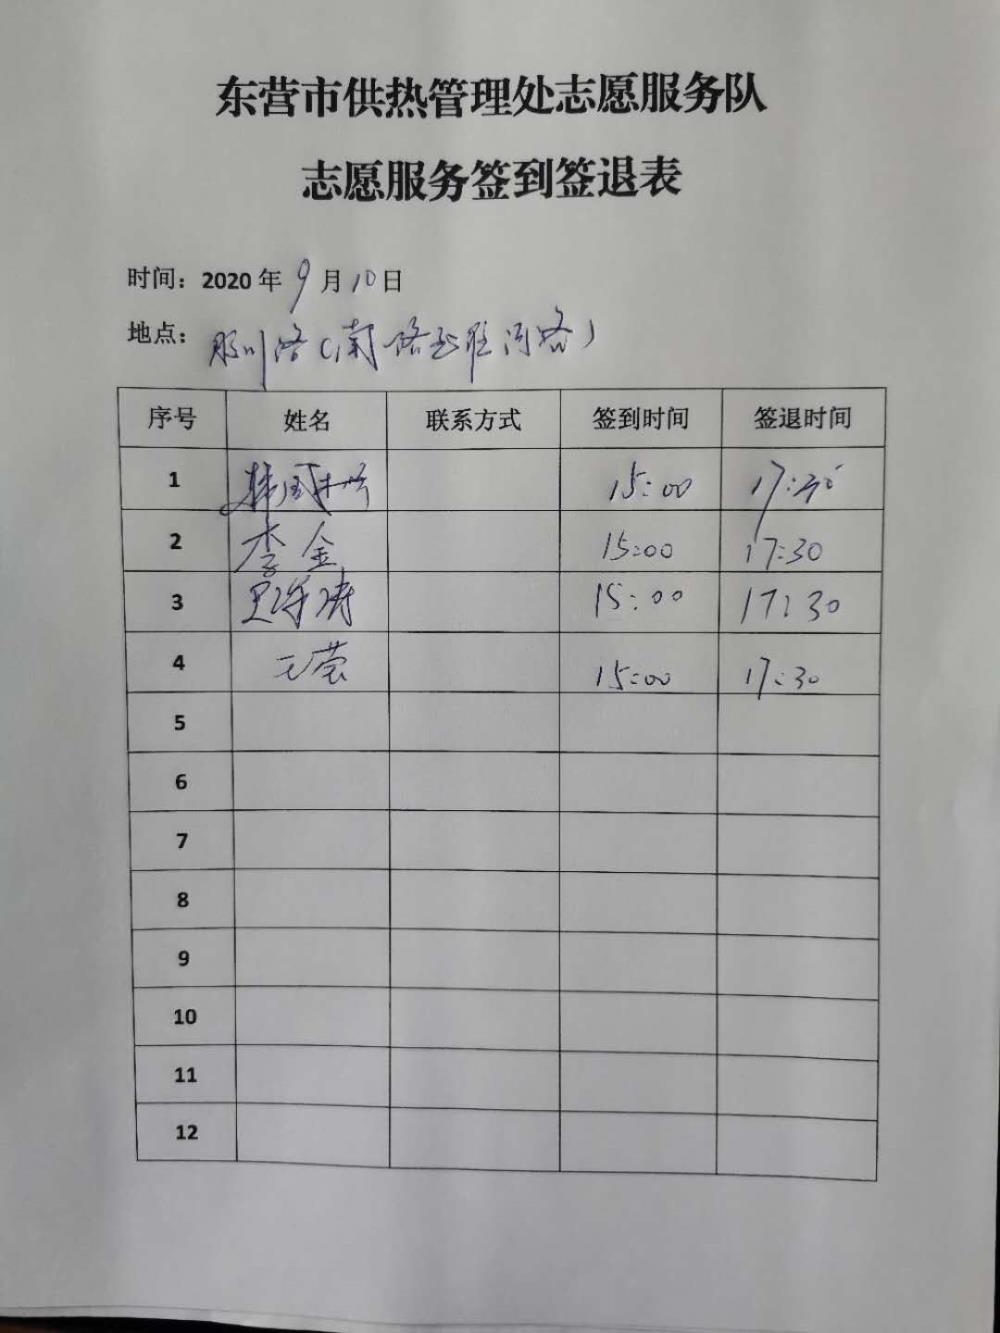 东营市供热管理处志愿服务队
志愿服务签到签退表
时间：2020年9月10日
地点：胶州路（南一路至淮河路）
序号 姓名 联系方式 签到时间 签退时间
1 韩国 15:00 17:30
2 李金 15:00 17:30
3 涛 15:00 17:30
4 王莹 15:00 17:30
5
6
7
8
9
10
11
12